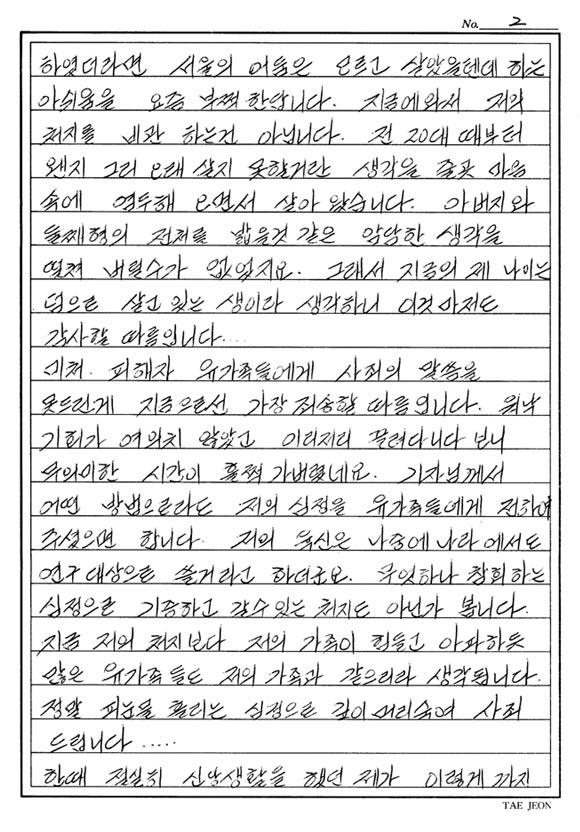 No. 2
하였더라면 서울의 어둠은 모르고 살았을텐데 하는
아쉬움을 요즘 부쩍 한답니다. 지금에와서 저의
처지를 비관 하는건 아닙니다. 전 20대 때부터
왠지 그리 오래 살지 못할거란 생각을 줄곧 마음
속에 염두해 오면서 살아 왔습니다. 아버지와
둘째형의 전처를 밟을것 같은 암담한 생각을
떨쳐 버릴수가 없었지요. 그래서 지금의 제 나이는
덤으로 살고 있는 생이라 생각하니 이것 마저도
감사할 따름입니다....
미처. 피해자 유가족들에게 사죄의 말씀을
못드린게 지금으로선 가장 죄송할 따름입니다. 워낙
기회가 여의치 않았고 이리저리 끌려다니다 보니
무의미한 시간이 훌쩍 가버렸네요. 기자님께서
어떤 방법으로라도 저의 심정을 유가족들에게 전하여
주셨으면 합니다. 저의 육신은 나중에 나라에서도
연구대상으로 쓸거라고 하더군요. 무엇하나 참회하는
심정으로 기증하고 갈수 있는 처지도 아닌가 봅니다.
지금 저의 처지보다 저의 가족이 힘들고 아파하듯
많은 유가족들도 저의 가족과 같으리라 생각됩니다.
정말 피눈물 흘리는 심정으로 깊이 머리숙여 사죄
드립니다.....
한때 절실히 신앙생활을 했던 제가 이렇게 까지
TAE JEON